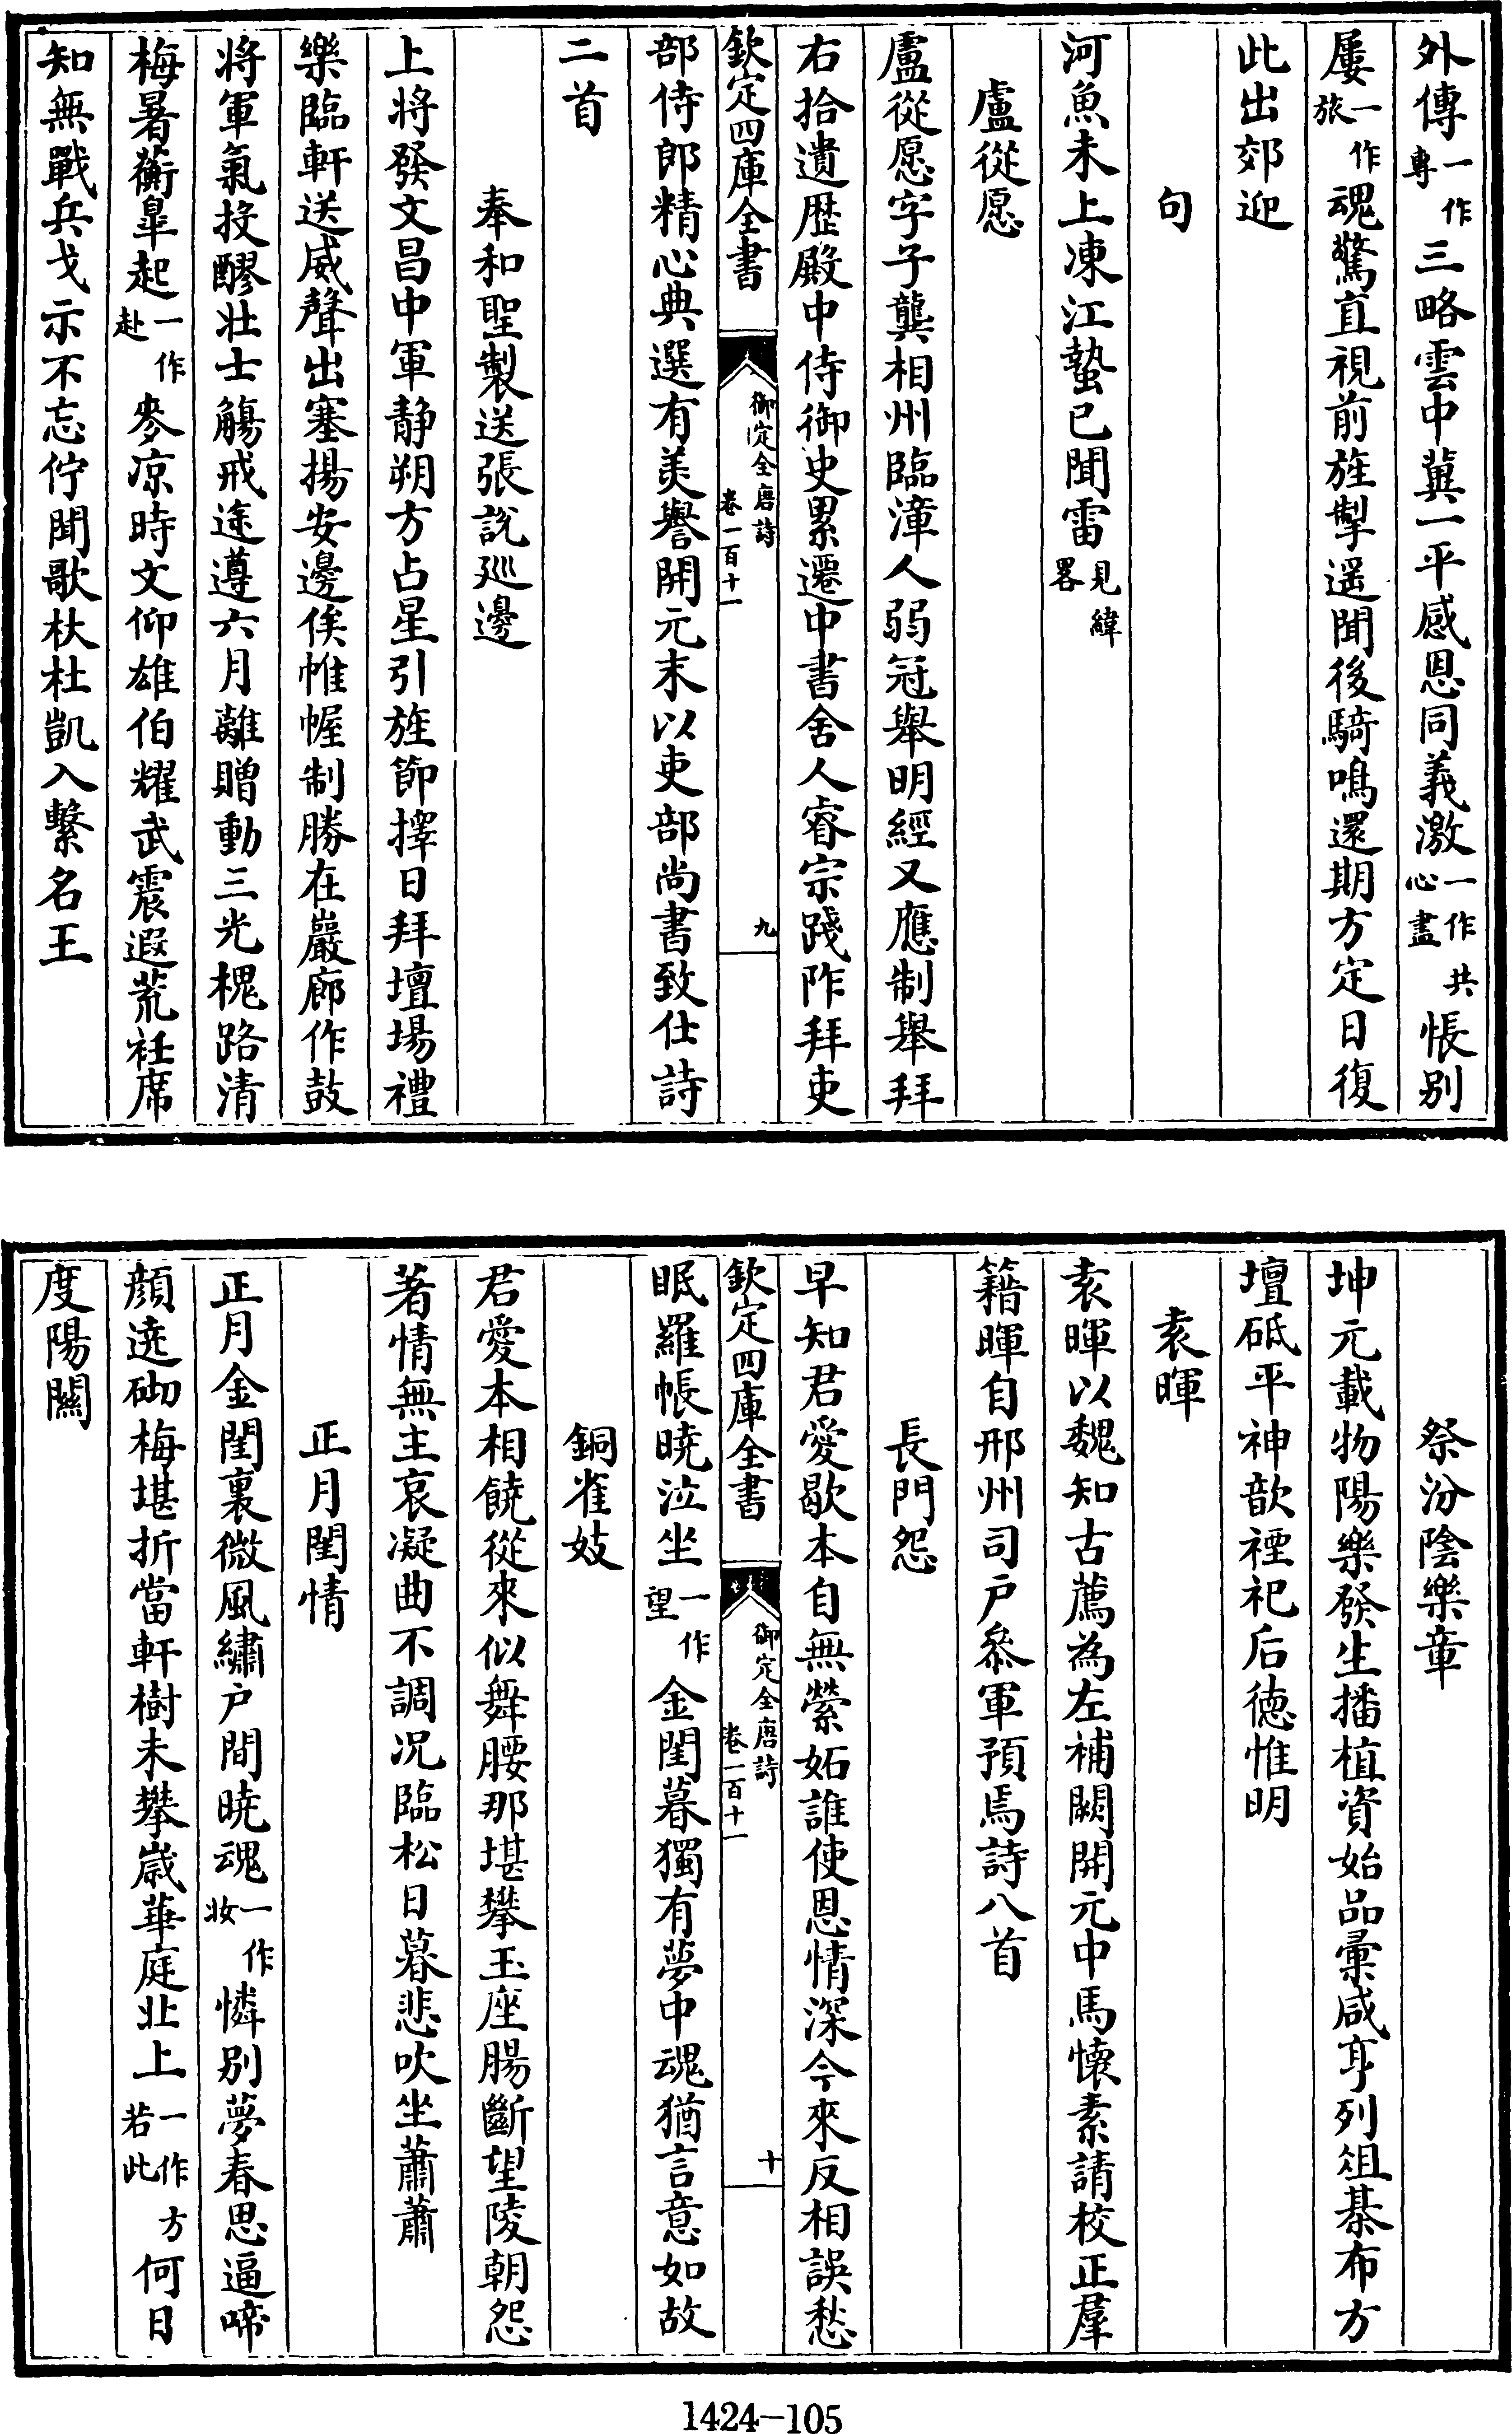 外傳一作專三略雲中冀一平感恩同義激一作共心盡悵别
屢一作旅魂驚直視前旌掣遥聞後騎鳴還期方定日復
此出郊迎
句
河魚未上凍江蟄已聞雷見緯畧
盧從愿
盧從愿字子龔相州臨漳人弱冠舉明經又應制舉拜
右拾遺歴殿中侍御史累遷中書舍人睿宗踐阼拜吏
欽定四庫全書
御定全唐詩
卷一百十一
九
部侍郎精心典選有美譽開元末以吏部尚書致仕詩
二首
奉和聖製送張說廵邊
上將發文昌中軍静朔方占星引旌節擇日拜壇場禮
樂臨軒送威聲出塞揚安邊俟帷幄制勝在巖廊作鼓
將軍氣投醪壯士觴戒途遵六月離贈動三光槐路清
梅暑蘅臯起一作赴麥凉時文仰雄伯耀武震遐荒衽席
知無戰兵戈示不忘佇聞歌杕杜凱入繫名王
祭汾陰樂章
坤元載物陽樂發生播植資始品彚咸亨列俎棊布方
壇砥平神歆禋祀后徳惟明
袁暉
袁暉以魏知古薦為左補闕開元中馬懷素請校正羣
籍暉自邢州司户叅軍預焉詩八首
長門怨
早知君愛歇本自無縈妬誰使恩情深今來反相誤愁
欽定四庫全書
御定全唐詩
卷一百十一
十
眠羅帳曉泣坐一作望金閨暮獨有夢中魂猶言意如故
銅雀妓
君愛本相饒從來似舞腰那堪攀玉座腸斷望陵朝怨
著情無主哀凝曲不調况臨松日暮悲吹坐蕭蕭
正月閨情
正月金閨裏微風繡户間曉魂一作妝憐别夢春思逼啼
顔遶砌梅堪折當軒樹未攀嵗華庭北上一作方若此何日
度陽關
1424-105